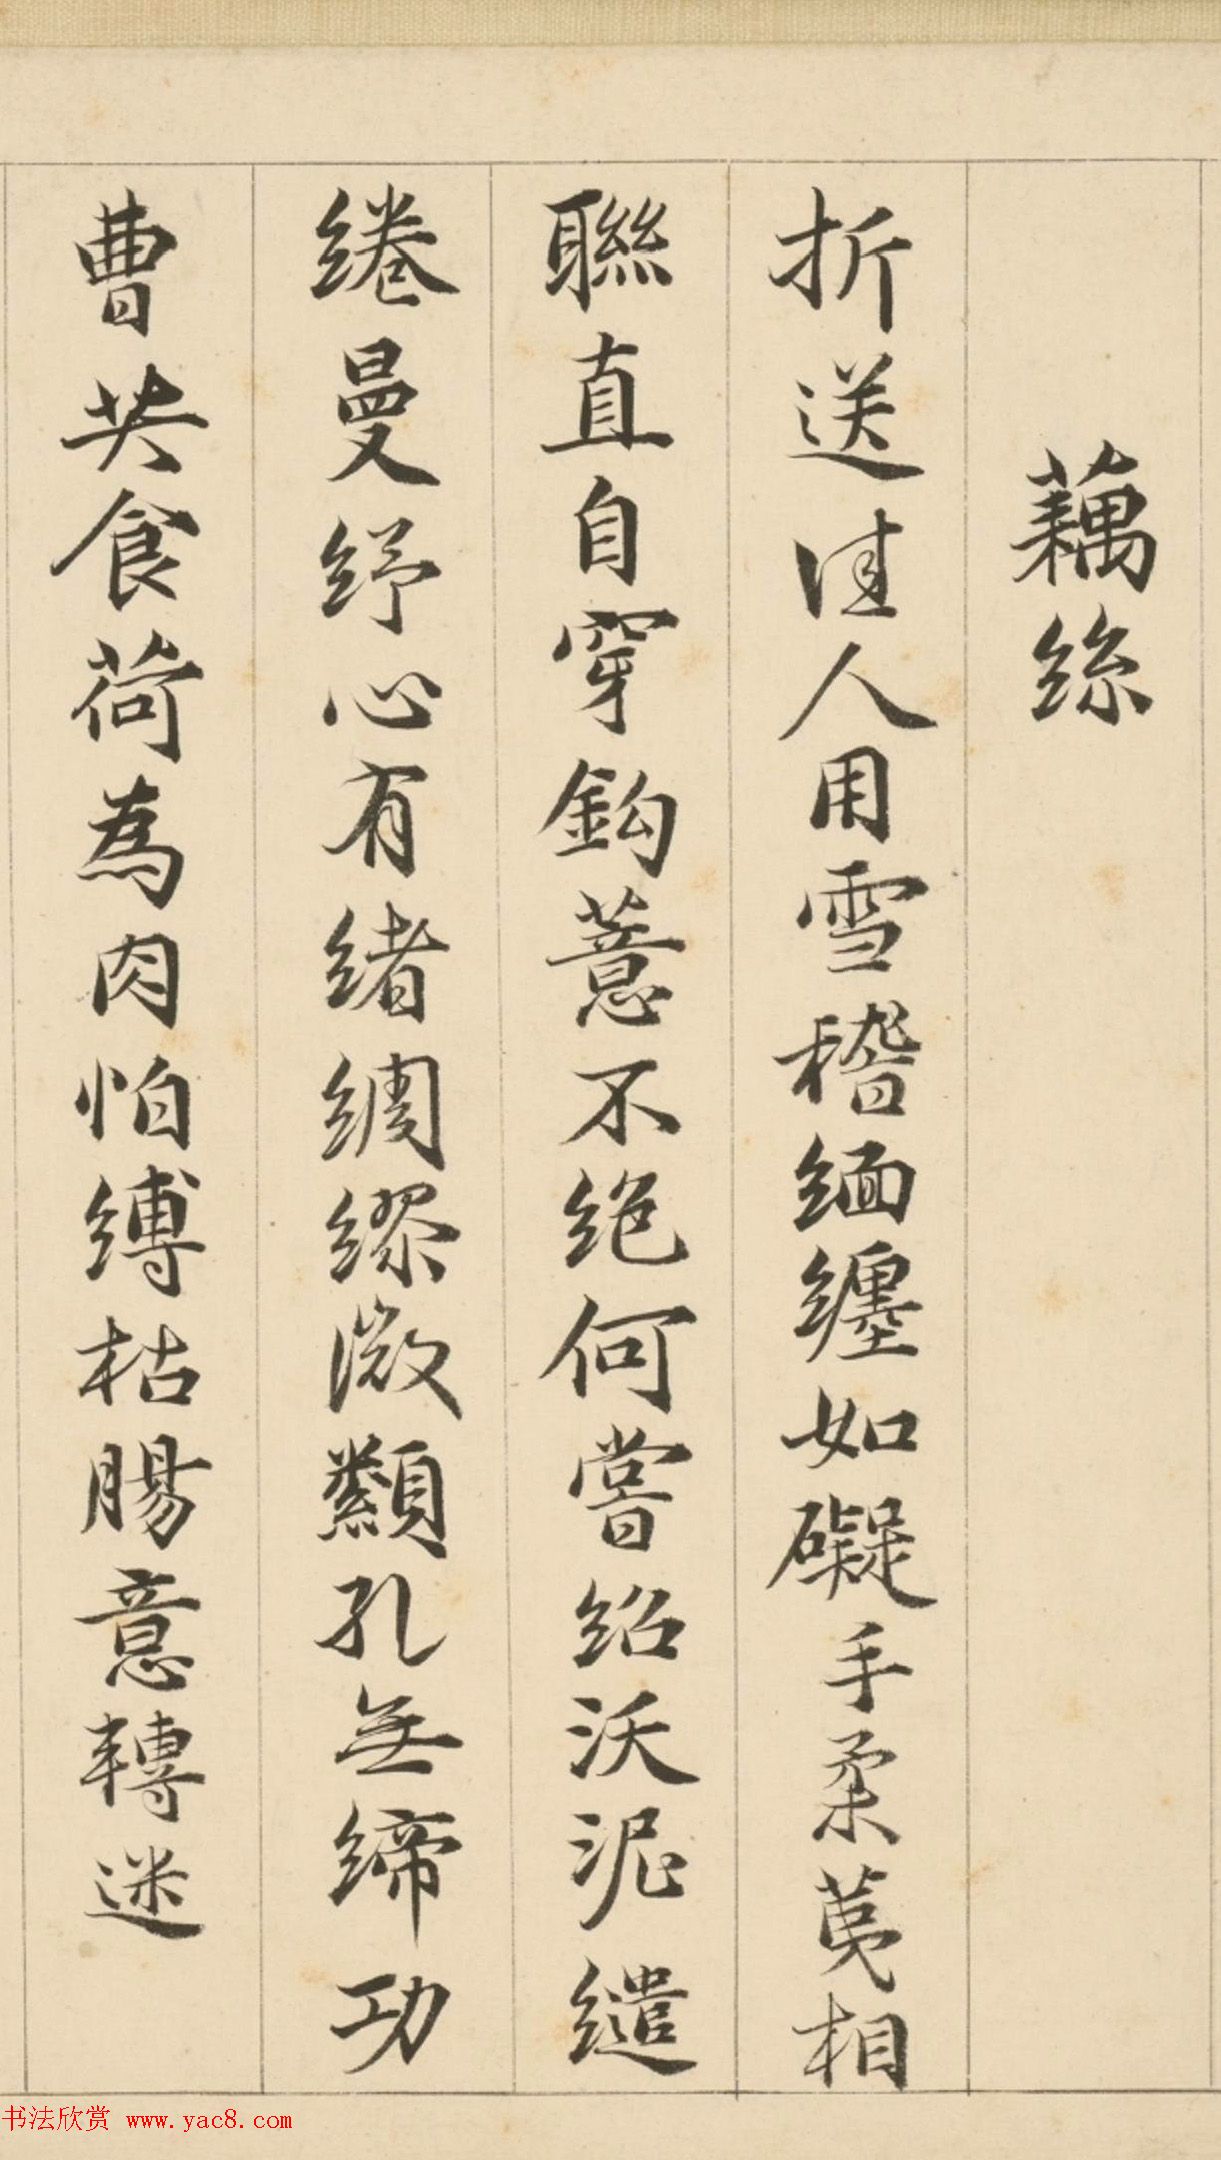 藕絲
折送佳人用雪稽緬纏如礙手柔荑相
聯直自穿鈎薏不絕何嘗紹沃泥繾
綣曼紓心有緒綢繆微纇孔無締功
曹共食荷為肉怕縛枯腸意轉迷
书法欣赏 www.yac8.com